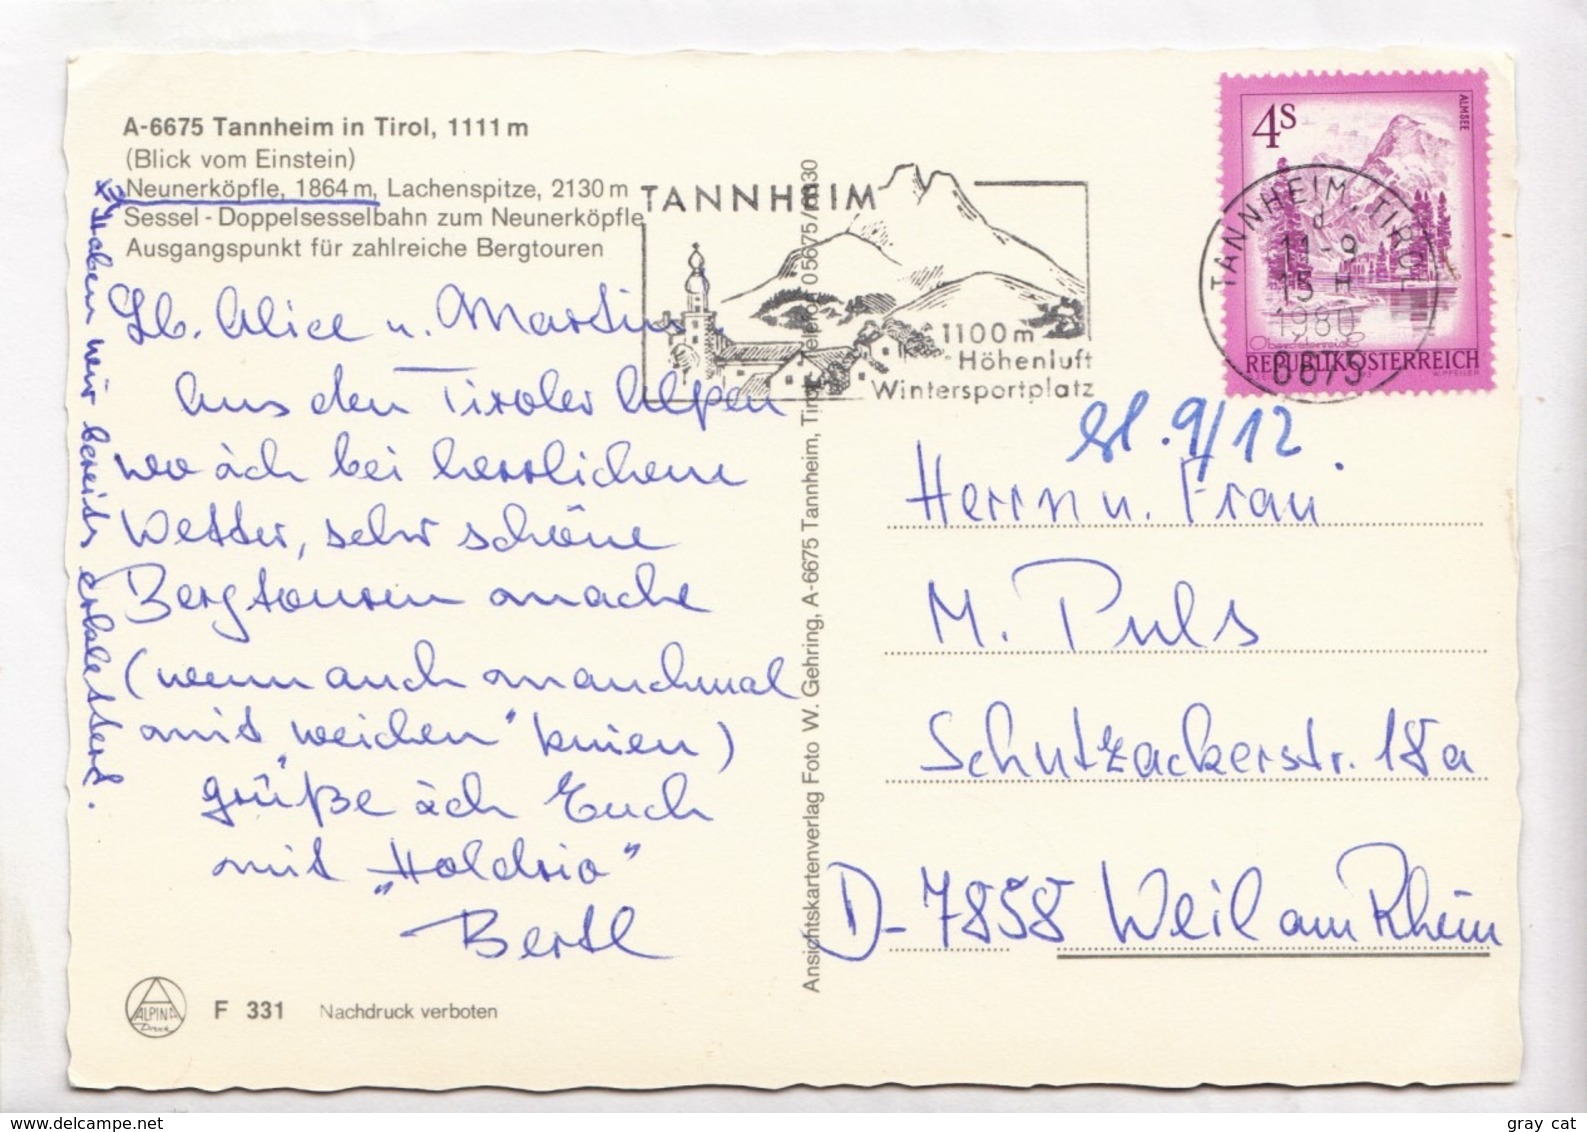 A-6675 Tannheim in Tirol, 1111 m
(Blick vom Einstein)
Neunerköpfle, 1864 m, Lachenspitze, 2130 m
Sessel - Doppelsesselbahn zum Neunerköpfle
Ausgangspunkt für zahlreiche Bergtouren
Lb. Alice u. Martin.
Aus den Tiroler Alpen
wo äch bei herrlichem
Wetter, sehr schöne
Bergtouren mache
(wenn auch manchmal
mit "weichen" knien)
grüße äch Euch
mit „Holdrio"
Bertl
Haben wir bereits erklettert.
ALPINA
Druck
F 331 Nachdruck verboten
Ansichtskartenverlag Foto W. Gehring, A-6675 Tannheim, Tirol, Telefon 05675/
TANNHEIM
1100 m
Höhenluft
Wintersportplatz
4S
ALMSEE
REPUBLIK ÖSTERREICH
TANNHEIM, TIROL
d
11-9
15 H
1980
6675
9/12
Herrn u. Frau
M. Puls
Schutzackerstr. 18a
D-7858 Weil am Rhein
gray cat
delcampe.net